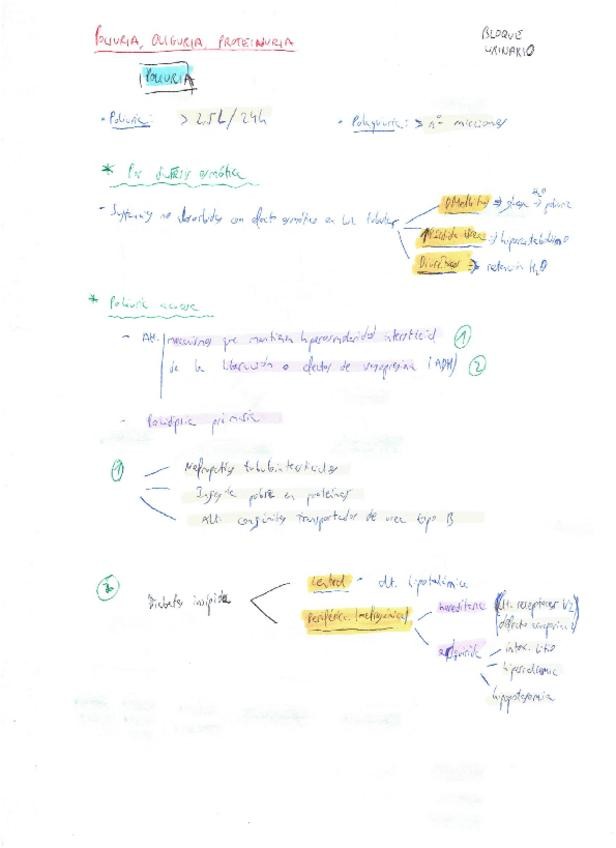 POLIURIA, OLIGURIA, PROTEINURIA
BLOQUE
URINARIO
POLIURIA
- Poliuria: > 2.5L/24h
- Polaquiuria: > nº micciones
* Por diuresis osmótica
- Sustancias no absorbidas con efecto osmótico en luz tubular
DMellitus → glucosa → H2O → poliuria
↑ Pérdida Urea → hipercatabolismo
Diuréticos → retención H2O
* Poliuria acuosa
- Alt. mecanismos que mantienen hiperosmolaridad intersticial ①
de la liberación o efectos de vasopresina (ADH) ②
- Polidipsia primaria
① Nefropatías tubulointersticiales
Ingesta pobre en proteínas
Alt. congénitas transportador de urea tipo B
② Diabetes insípida
Central - alt. hipotalámica
Periférica (nefrogénica)
hereditaria
Alt. receptores V2
defecto acuaporina 2
adquirida
intox. litio
hipercalcemia
hipopotasemia